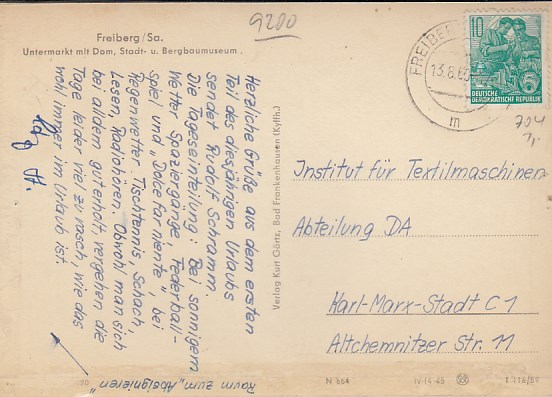 9200
Freiberg/Sa.
Untermarkt mit Dom, Stadt- u. Bergbaumuseum.
Herzliche Grüße aus dem ersten
Teil des diesjährigen Urlaubs
sendet Rudolf Schramm.
Die Tageseinteilung: Bei sonnigem
Wetter Spaziergänge, Federball-
spiel und „Dolce far niente", bei
Regenwetter: Tischtennis, Schach,
Lesen, Radiohören. Obwohl man sich
bei alldem gut erholt, vergehen die
Tage leider viel zu rasch, wie das
wohl immer im Urlaub ist.
Raum zum „Absignieren"
Verlag Kurt Görtz, Bad Frankenhausen (Kyffh.)
FREIBERG
13.8.60
m
10
DEUTSCHE
DEMOKRATISCHE REPUBLIK
704
Institut für Textilmaschinen
Abteilung DA
Karl-Marx-Stadt C 1
Altchemnitzer Str. 11
20
N 664
IV-14-45